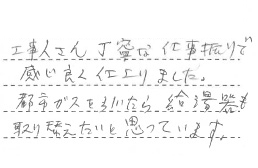 工事人さん丁寧な仕事振りで
感じ良く仕上りました。
都市ガスを引いたら給湯器も
取り替えたいと思っています。